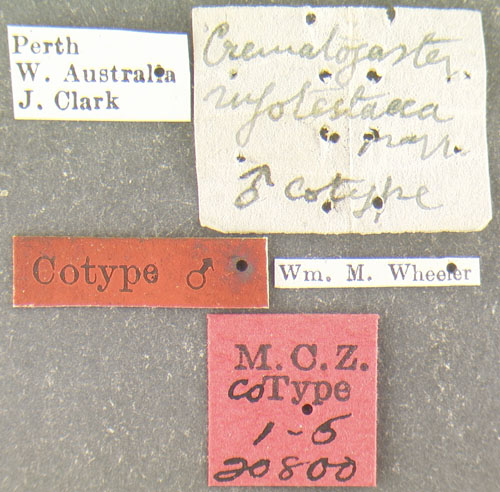 Perth
W. Australia
J. Clark
Crematogaster
rufotestacea
♂ cotype
Cotype ♂
Wm. M. Wheeler
M. C. Z.
coType
1-5
20800